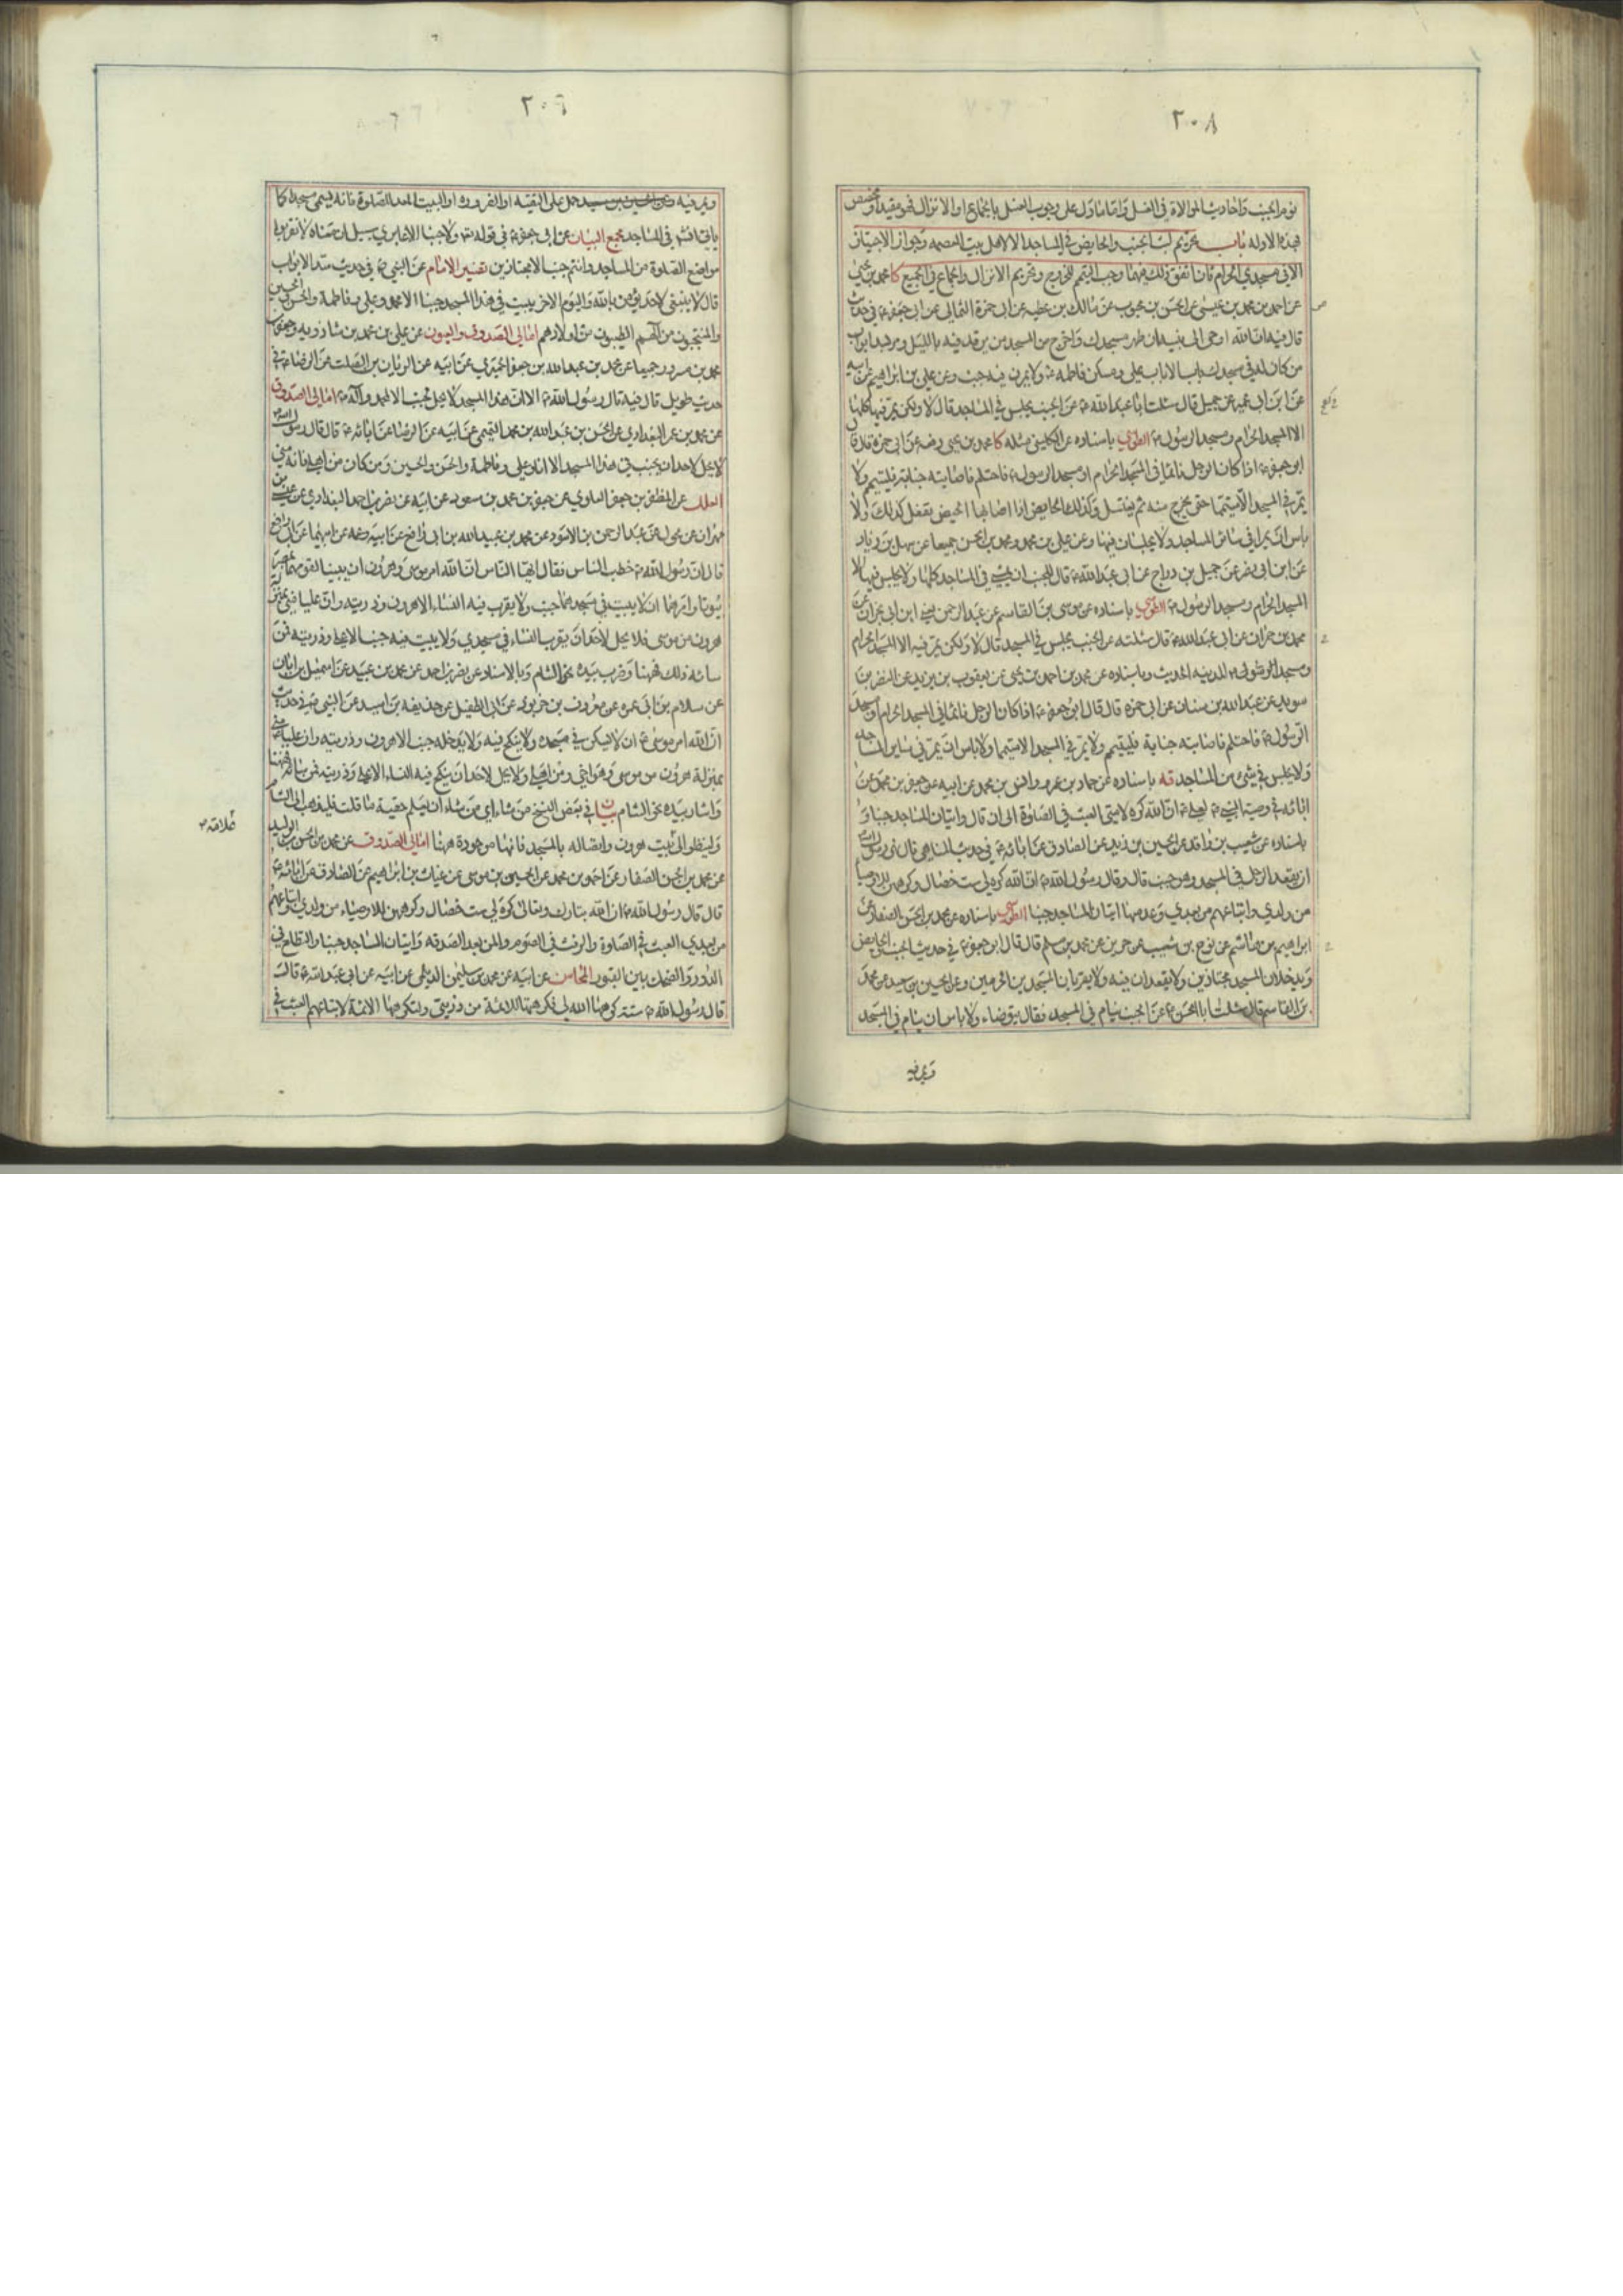 ٢٠٨
نوم الجنب واحاديث الموالاة في الغسل واما ما دل على وجوب الغسل بالجماع او الانزال فهو مقيد او مخصص
بهذه الادلة باب تحريم لبث الجنب والحايض في المساجد الا لاهل بيت العصمه وجواز الاجتياز
الا في مسجدي الحرام فان اتفق ذلك فيهما وجب التيمم للخروج وتحريم الانزال والجماع في الجميع كا محمد بن يحيى
عن احمد بن محمد بن عيسى عن الحسن بن محبوب عن مالك بن عطيه عن ابى حمزة الثمالى عن ابى جعفر ع في حديث
قال فيه ان الله اوحى الى نبيه ان طهر مسجدك واخرج من المسجد من يرقد فيه بالليل ومر بسد ابواب
من كان له في مسجدك باب الا باب علي ومسكن فاطمه ع ولا يمرن فيه جنب وعن علي بن ابراهيم عن ابيه
عن ابن ابى عمير عن جميل قال سئلت ابا عبد الله ع عن الجنب يجلس في المساجد قال لا ولكن يمر فيها كلها
الا المسجد الحرام ومسجد الرسول ص الطوسي باسناده عن الكليني مثله كا محمد بن يحيى رفعه عن ابى حمزة قال قال
ابو جعفر ع اذا كان الرجل نائما في المسجد الحرام او مسجد الرسول ص فاحتلم فاصابته جنابة فليتيمم ولا
يمر في المسجد الا متيمما حتى يخرج منه ثم يغتسل وكذلك الحايض اذا اصابها الحيض تفعل كذلك ولا
باس ان يمرا في سائر المساجد ولا يجلسان فيها وعن علي بن محمد ومحمد بن الحسن جميعا عن سهل بن زياد
عن ابن ابى نصر عن جميل بن دراج عن ابى عبد الله ع قال للجنب ان يمشي في المساجد كلها ولا يجلس فيها الا
المسجد الحرام ومسجد الرسول ص الطوسي باسناده عن موسى بن القاسم عن عبد الرحمن يعني ابن ابى نجران عن
محمد بن حمران عن ابى عبد الله ع قال سئلته عن الجنب يجلس في المسجد قال لا ولكن يمر فيه الا المسجد الحرام
ومسجد الرسول ص المدينه الحديث وباسناده عن محمد بن احمد بن يحيى عن يعقوب بن يزيد عن النضر بن
سويد عن عبد الله بن سنان عن ابى حمزه قال قال ابو جعفر ع اذا كان الرجل نائما في المسجد الحرام او مسجد
الرسول ص فاحتلم فاصابته جنابة فليتيمم ولا يمر في المسجد الا متيمما ولا باس ان يمر في ساير المساجد
ولا يجلس في شئ من المساجد قه باسناده عن حماد بن عمرو وانس بن محمد عن ابيه عن جعفر بن محمد عن
ابائه في وصية النبي ص لعلي ع ان الله كره لامتى العبث في الصلوة الى ان قال واتيان المساجد جنبا و
باسناده عن شعيب بن واقد عن الحسين بن زيد عن الصادق عن ابائه ع في حديث المناهى قال نهى رسول الله ص
ان يقعد الرجل في المسجد وهو جنب قال وقال رسول الله ص ان الله كره لي ست خصال وكرههن للاوصياء
من ولدي واتباعهم من بعدي وعد منها اتيان المساجد جنبا الطوسي باسناده عن محمد بن الحسن الصفار عن
ابراهيم بن هاشم عن نوح بن شعيب عن حريز عن محمد بن مسلم قال قال ابو جعفر ع في حديث الجنب والحايض
ويدخلان المسجد مجتازين ولا يقعدان فيه ولا يقربان المسجدين الحرمين وعن الحسين بن سعيد عن محمد
بن القاسم قال سئلت ابا الحسن ع عن الجنب ينام في المسجد فقال يتوضاء ولا باس ان ينام في المسجد
ويمر فيه
٢٠٦
ويمر فيه حمل على التقيه او الضروره او البيت المعد للصلوة فانه يسمى مسجدا كما
ياتى انشه في المساجد مجمع البيان عن ابى جعفر ع في قوله تعالى ولا جنبا الا عابري سبيل ان معناه لا تقربوا
مواضع الصلوة من المساجد وانتم جنب الا مجتازين تفسير الامام عن النبي ص في حديث سد الابواب
قال لا ينبغي لاحد يؤمن بالله واليوم الاخر يبيت في هذا المسجد جنبا الا محمد وعلي وفاطمة والحسن والحسين
والمنتجبون من آلهم الطيبون من اولادهم امالى الصدوق والعيون عن علي بن محمد بن شاذويه وجعفر بن
محمد بن مسرور جميعا عن محمد بن عبد الله بن جعفر الحميري عن ابيه عن الريان بن الصلت عن الرضا ع في
حديث طويل قال فيه قال رسول الله ص الا ان هذا المسجد لا يحل لجنب الا لمحمد وآله ص امالى الصدوق
عن محمد بن عمر البغدادي عن الحسن بن عبد الله بن محمد التميمي عن ابيه عن الرضا عن ابائه ع قال قال رسول الله ص
لا يحل لاحد ان يجنب في هذا المسجد الا انا وعلي وفاطمة والحسن والحسين ومن كان من اهلي فانه مني
العلل عن المظفر بن جعفر العلوي عن جعفر بن محمد بن مسعود عن ابيه عن نصر بن احمد البغدادي عن عيسى بن
مهران عن مخول عن عبد الرحمن بن الاسود عن محمد بن عبيد الله بن ابى رافع عن ابيه وعمه عن ابيهما عن ابى رافع
قال ان رسول الله ص خطب الناس فقال ايها الناس ان الله امر موسى وهرون ان يبنيا لقومهما بمصر
بيوتا وامرهما ان لا يبيت في مسجدهما جنب ولا يقرب فيه النساء الا هرون وذريته وان عليا مني بمنزلة
هرون من موسى فلا يحل لاحد ان يقرب النساء في مسجدي ولا يبيت فيه جنبا الا علي وذريته فمن
ساءه ذلك فههنا وضرب بيده نحو الشام وبالاسناد عن نصر بن احمد عن محمد بن عبيد عن اسمعيل بن ابان
عن سلام بن ابى عمره عن معروف بن خربوذ عن ابى الطفيل عن حذيفه بن اسيد عن النبي ص في حديث
ان الله امر موسى ع ان لا يسكن في مسجده ولا ينكح فيه ولا يدخله جنب الا هرون وذريته وان عليا مني
بمنزلة هرون من موسى وهو اخي ومن اهلي ولا يحل لاحد ان ينكح فيه النساء الا علي وذريته فمن ساءه فههنا
واشار بيده نحو الشام بيان في بعض النسخ من شاء اى من شاء ان يعلم حقيقة ما قلت فليذهب الى الشام
ولينظر الى بيت هرون واتصاله بالمسجد فانها موجودة ههنا امالى الصدوق عن محمد بن الحسن بن الوليد
عن محمد بن الحسن الصفار عن احمد بن محمد عن الحسين بن موسى عن غياث بن ابراهيم عن الصادق عن ابائه ع
قال قال رسول الله ص ان الله تبارك وتعالى كره لي ست خصال وكرههن للاوصياء من ولدي واتباعهم
من بعدي العبث في الصلوة والرفث في الصوم والمن بعد الصدقه واتيان المساجد جنبا والتطلع في
الدور والضحك بين القبور المحاسن عن ابيه عن محمد بن سليمن الديلمى عن ابيه عن ابى عبد الله ع قال
قال رسول الله ص ستة كرهها الله لي فكرهتها للائمة من ذريتي ولتكرهها الائمة لاتباعهم العبث في